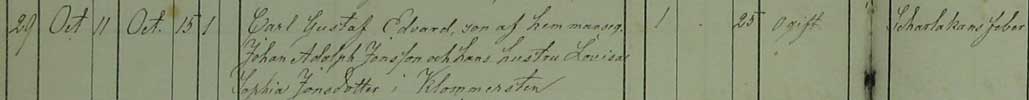 29 Oct 11 Oct. 15 1 Carl Gustaf Edvard, son af hemmanseg. 1 . 25 Ogift Scharlakansfeber
Johan Adolph Jonsson och hans hustru Lovisa
Sophia Jonsdotter i Klommersten